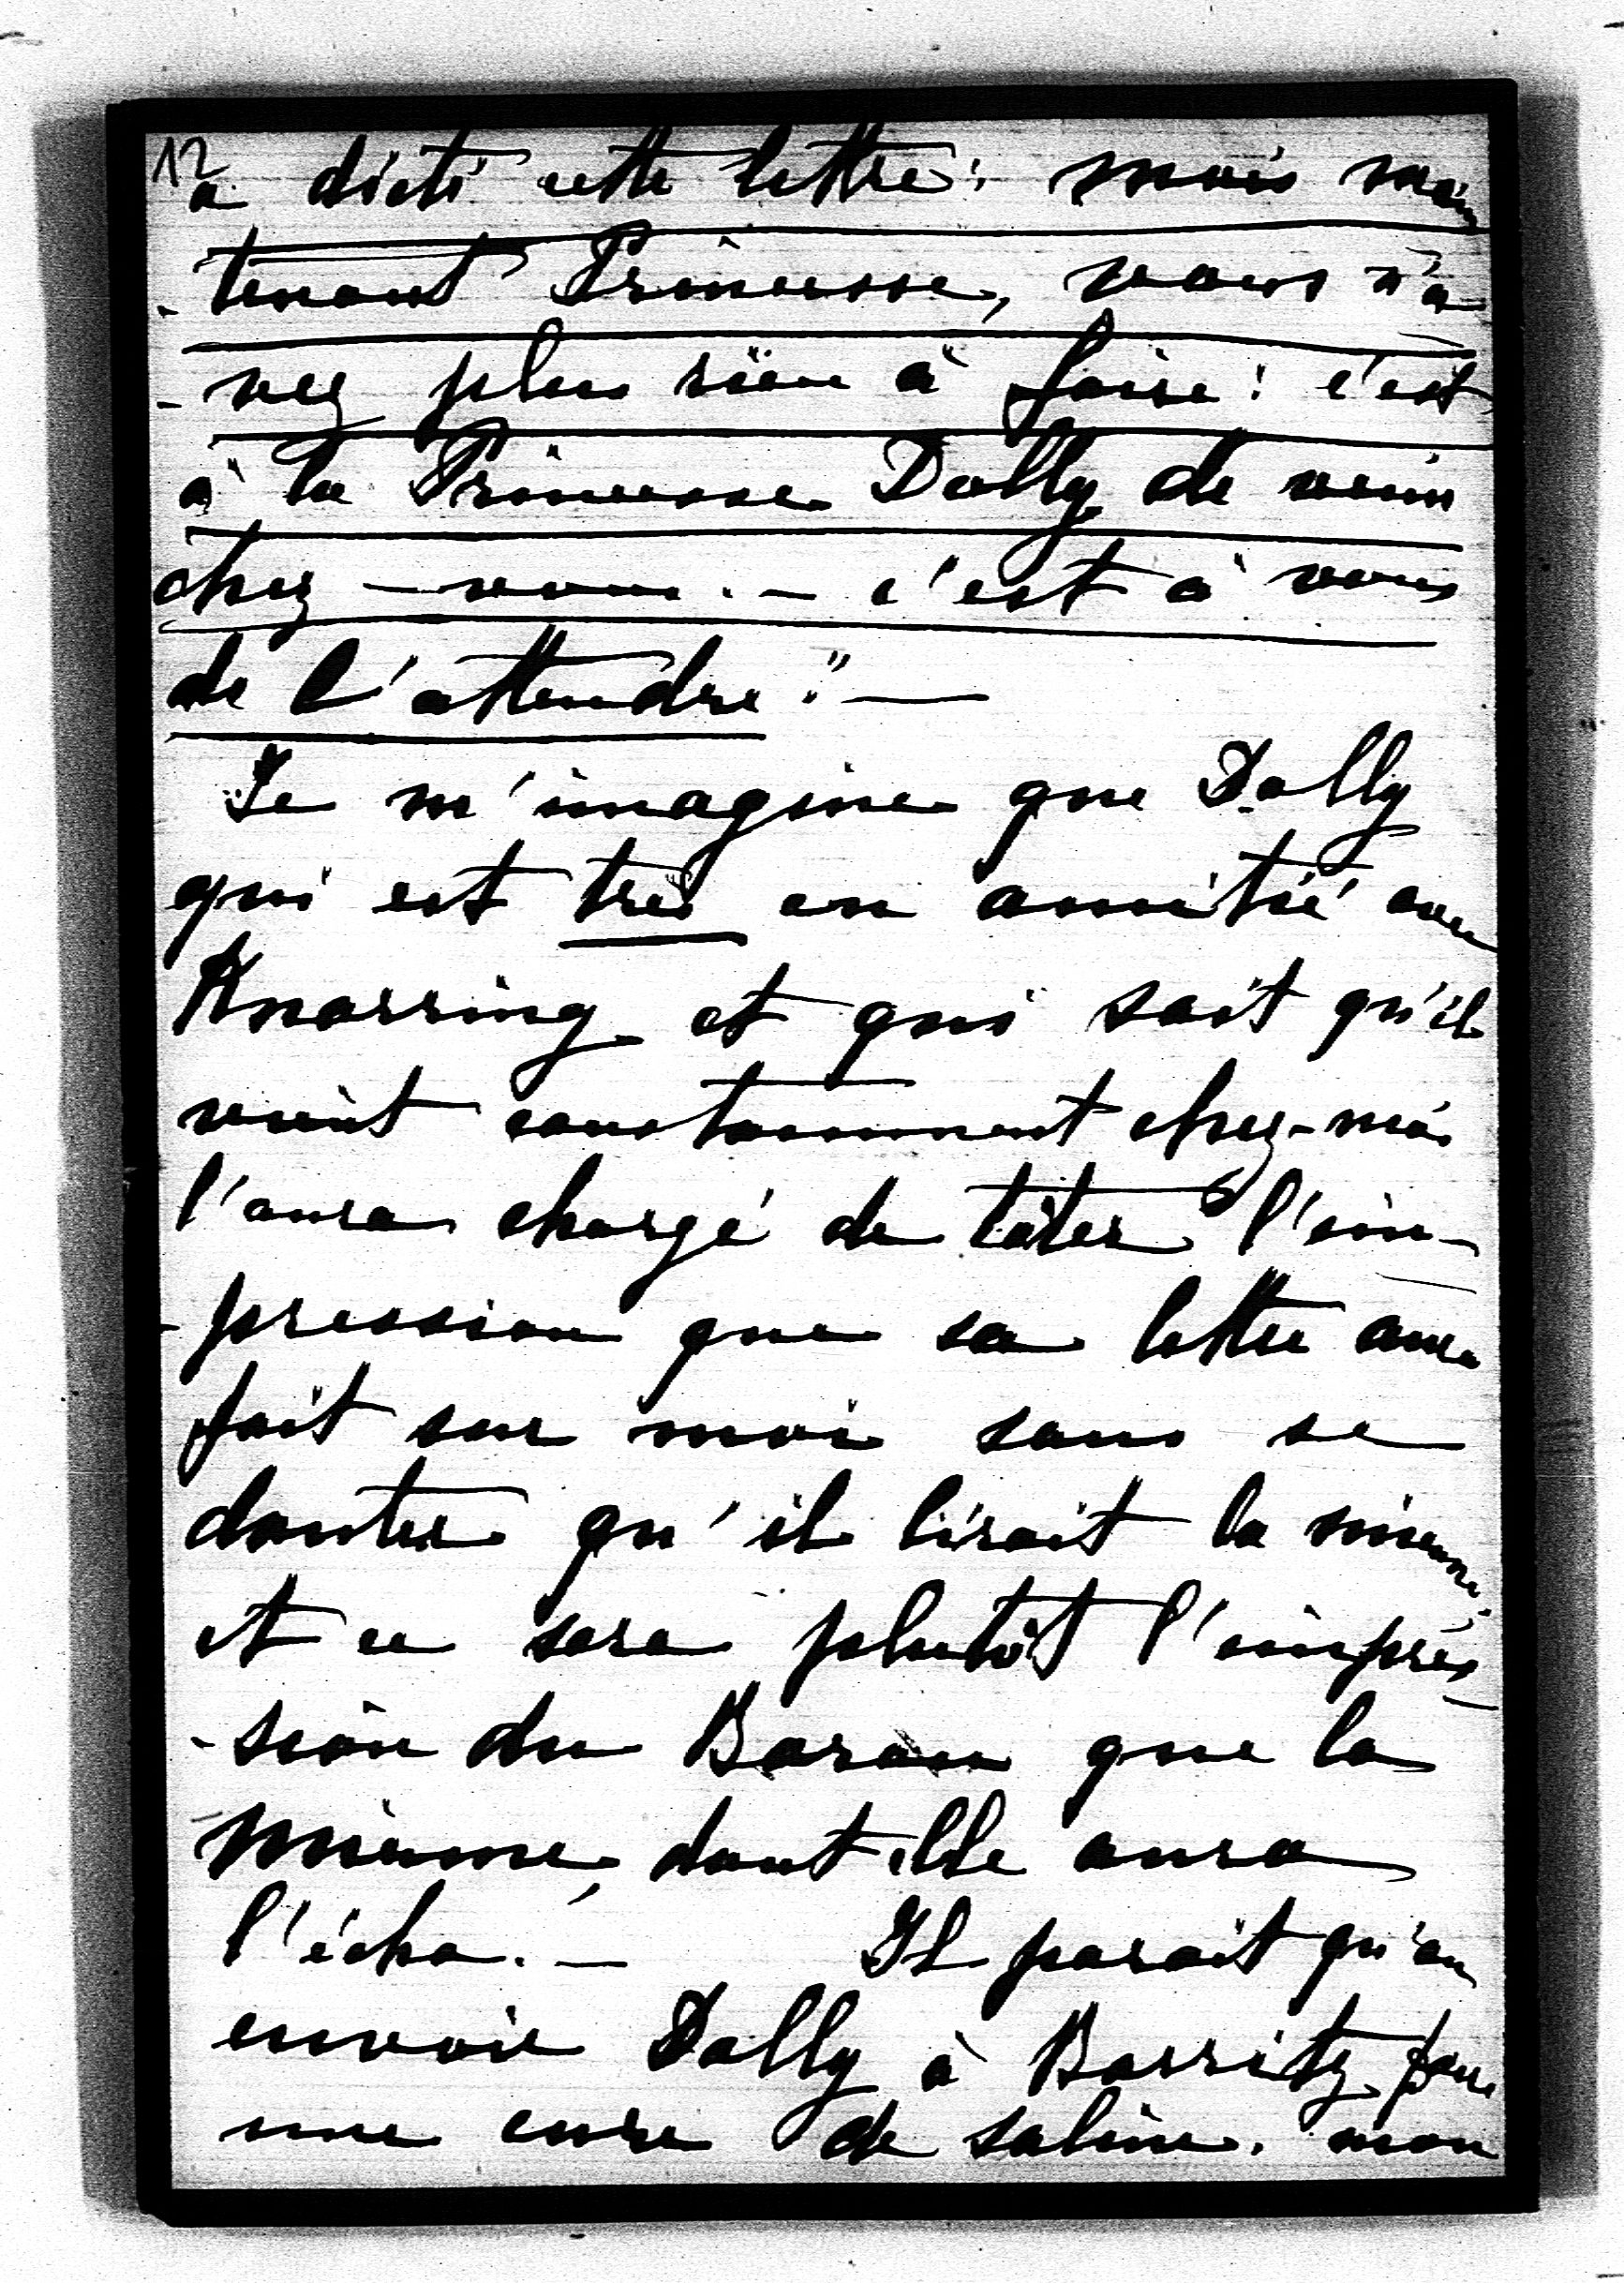 12
a dicté cette lettre: mais main
-tenant Princesse, vous n'a
-vez plus rien à faire: c'est
à la Princesse Dolly de venir
chez-vous. - c'est à vous
de l'attendre." —
Je m'imagine que Dolly
qui est très en amitié avec
Knorring et qui sait qu'il
vient constamment chez-moi
l'aura chargé de tâter l'im-
-pression que sa lettre aura
fait sur moi sans se
douter qu'il lirait la mienne
et ce sera plutôt l'impres
-sion du Baron que la
mienne, dont elle aura
l'écho. — Il parait qu'on
envoie Dolly à Barritz pour
une cure de saline. mon